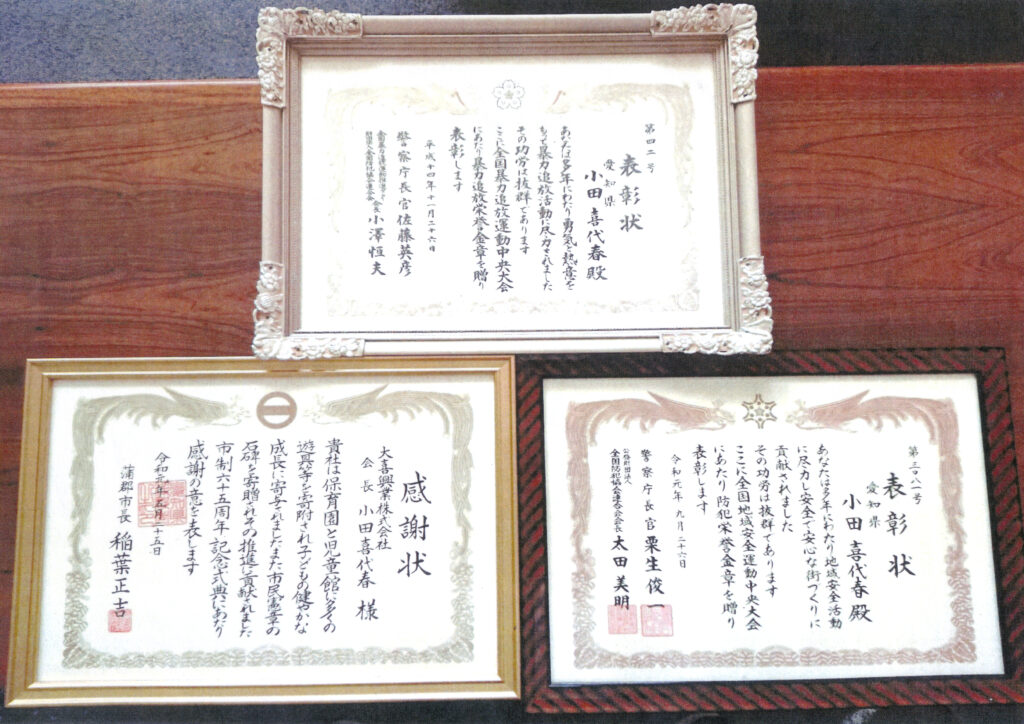 第四二号
表彰状
愛知県
小田喜代春殿
あなたは多年にわたり勇気と熱意を
もって暴力追放活動に尽力されました
その功労は抜群であります
ここに全国暴力追放運動中央大会
にあたり暴力追放栄誉金章を贈り
表彰します
平成十四年十一月二十六日
警察庁長官佐藤英彦
全国暴力追放運動推進センター
財団法人全国防犯協会連合会
会長 小澤恒夫
感謝状
大喜興業株式会社
会長 小田喜代春 様
貴社は保育園と児童館に多くの
遊具等を寄附され子どもの健やかな
成長に寄与されましたまた市民憲章の
石碑を寄贈されその推進に貢献されました
市制六十五周年記念式典にあたり
感謝の意を表します
令和元年五月二十五日
蒲郡市長 稲葉正吉
第三〇八一号
表彰状
愛知県
小田喜代春殿
あなたは多年にわたり地域安全活動
に尽力し安全で安心な街づくりに
貢献されました
その功労は抜群であります
ここに全国地域安全運動中央大会
にあたり防犯栄誉金章を贈り
表彰します
令和元年九月二十六日
警察庁長官 栗生俊一
公益財団法人
全国防犯協会連合会会長 太田美明